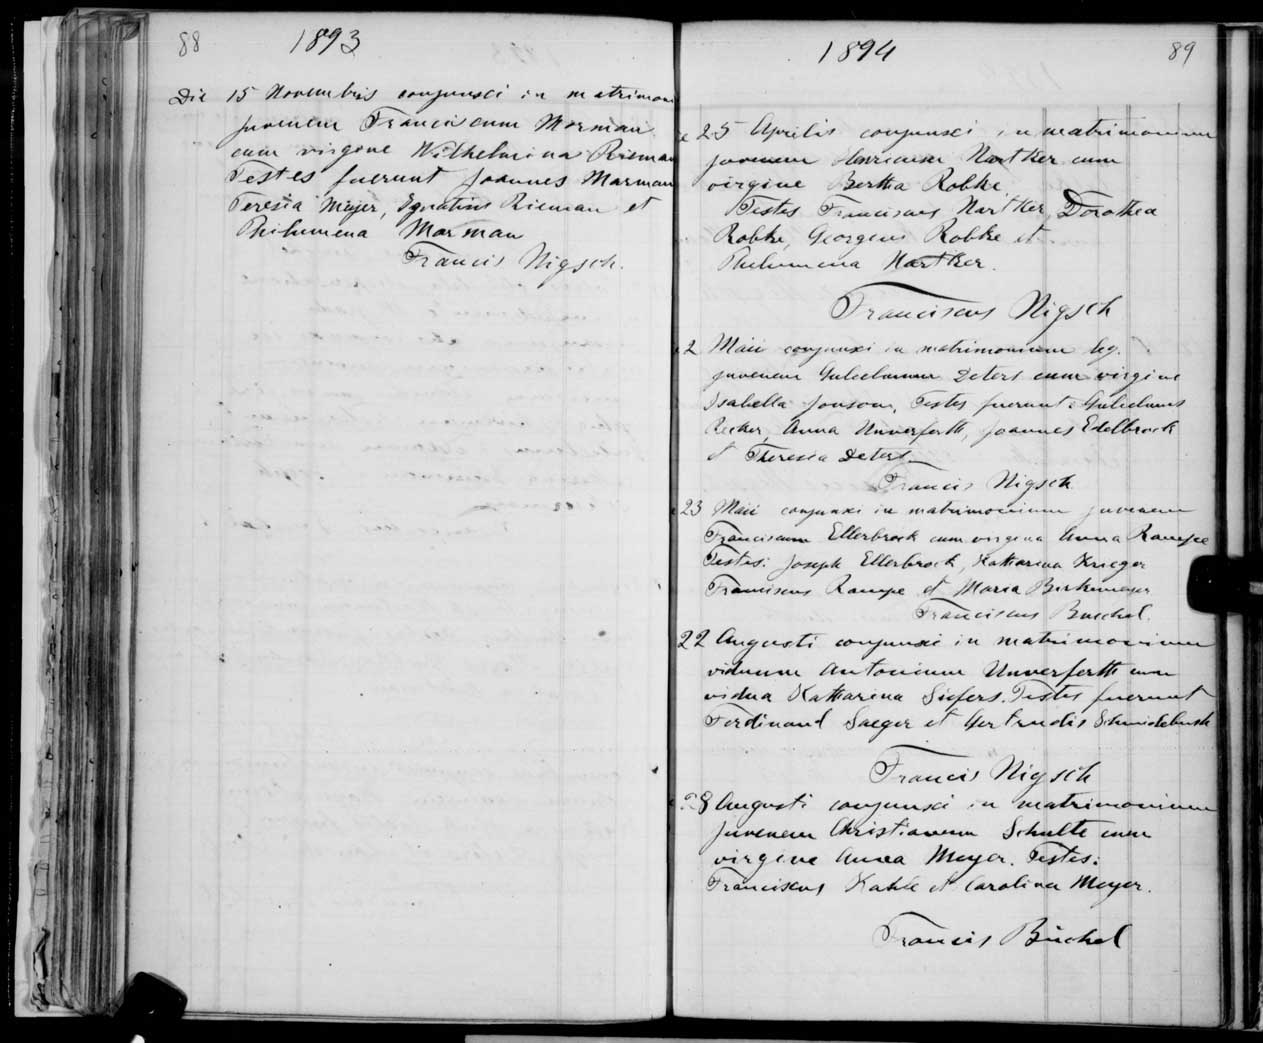 88 1893
Die 15 Novembris conjunxi in matrimon
juvenem Franciscum Morman
cum virgine Wilhelmina Rieman
Testes fuerunt Joannes Marman
Teresia Meyer, Ignatius Rieman et
Philumena Morman
Francis Nigsch.
1894 89
e 25 Aprilis conjunxi in matrimonium
juvenem Henricum Hartker cum
virgine Bertha Robke
Testes Franciscus Hartker, Dorothea
Robke, Georgius Robke et
Philumena Hartker.
Franciscus Nigsch
e 2 Maii conjunxi in matrimonium leg.
juvenem Gulielmum Deters cum virgine
Isabella Jonson, Testes fuerunt Gulielmus
Recker, Anna Unverferth, Joannes Edelbrock
et Theresia Deters.
Francis Nigsch.
e 23 Maii conjunxi in matrimonium juvenem
Franciscum Ellerbrock cum virgina Anna Rampe
Testes: Joseph Ellerbrock, Katharina Krieger
Franciscus Rampe et Maria Birkemeyer
Franciscus Buechel.
22 Augusti conjunxi in matrimonium
viduum Antonium Unverferth cum
vidua Katharina Siefers. Testes fuerunt
Ferdinand Saeger et Gertrudis Schmidebusch
Francis Nigsch
28 Augusti conjunxi in matrimonium
juvenem Christianum Schulte cum
virgine Anna Meyer. Testes:
Franciscus Kahle et Carolina Meyer.
Francis Büchel